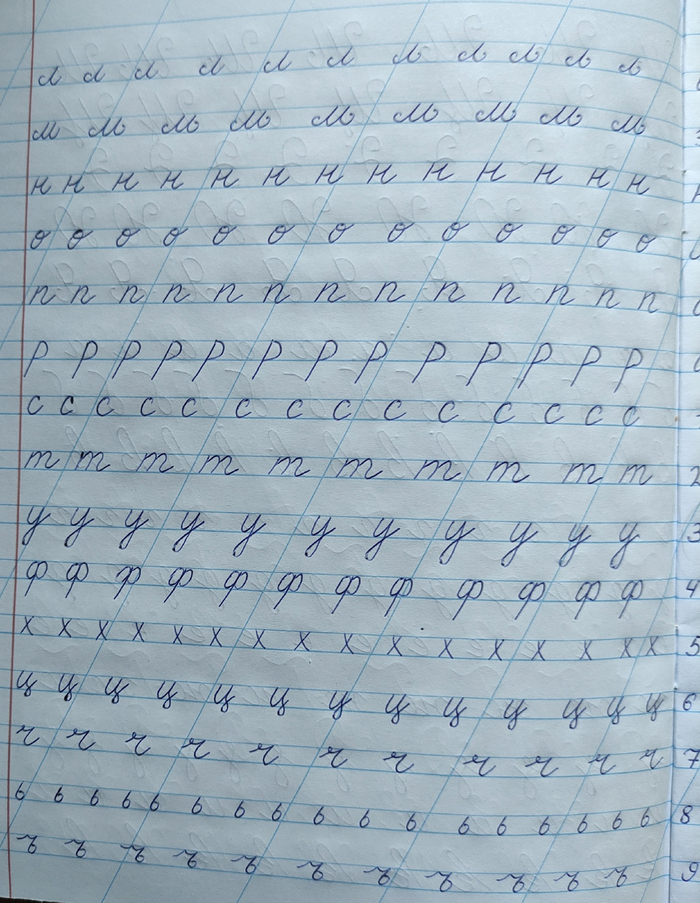 л л л л л л л л л л л
м м м м м м м м м
н н н н н н н н н н н н н
о о о о о о о о о о о о о
п п п п п п п п п п п п п
р р р р р р р р р р р р р
с с с с с с с с с с с с с с
т т т т т т т т т т 2
у у у у у у у у у у у 3
ф ф ф ф ф ф ф ф ф ф ф ф 4
х х х х х х х х х х х х х х х х 5
ц ц ц ц ц ц ц ц ц ц ц ц ц 6
ч ч ч ч ч ч ч ч ч ч ч 7
ь ь ь ь ь ь ь ь ь ь ь ь ь ь ь ь ь 8
ъ ъ ъ ъ ъ ъ ъ ъ ъ ъ ъ 9